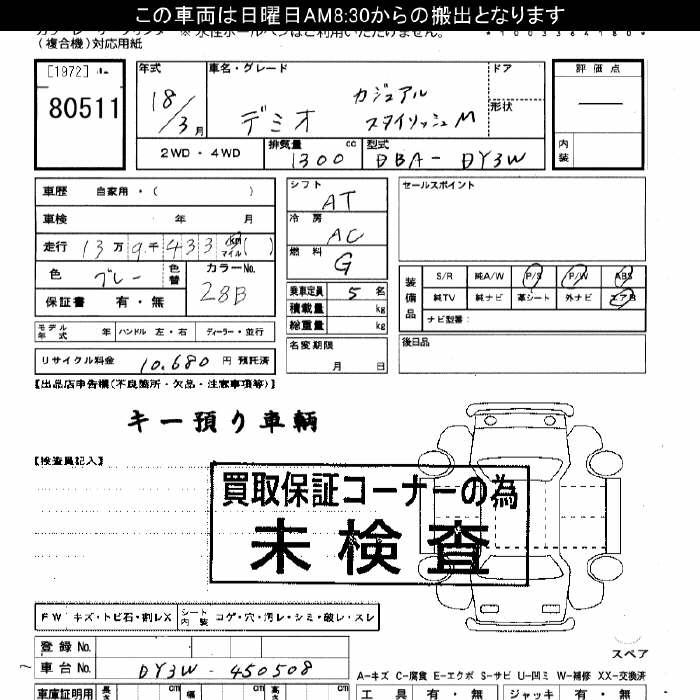 この車両は日曜日AM8:30からの搬出となります
(複合機)対応用紙
[1972]
80511
年式
18/3月
車名・グレード
デミオ
カジュアル
スタイリッシュM
ドア
形状
評価点
内装
2WD・4WD
排気量
1300 cc
型式
DBA-DY3W
車歴 自家用・( )
車検 年 月
走行 13万9千433 km マイル ( )
色 グレー
色替
カラーNo. 28B
保証書 有・無
シフト AT
冷房 AC
燃料 G
乗車定員 5 名
積載量 kg
総重量 kg
名変期限
月 日
セールスポイント
装備品
S/R 純A/W P/S P/W ABS
純TV 純ナビ 革シート 外ナビ エアB
ナビ型番:
後日品
モデル年式 年 ハンドル 左・右 ディーラー・並行
リサイクル料金 10.680 円 預託済
【出品店申告欄(不良箇所・欠品・注意事項等)】
キー預り車輌
【検査員記入】
買取保証コーナーの為
未検査
FW キズ・トビ石・割レX
シート内装 コゲ・穴・汚レ・シミ・破レ・スレ
スペア
登録No.
車台No. DY3W-450508
A-キズ C-腐食 E-エクボ S-サビ U-凹ミ W-補修 XX-交換済
車庫証明用 長さ cm 幅 cm cm
工具 有・無 ジャッキ 有・無